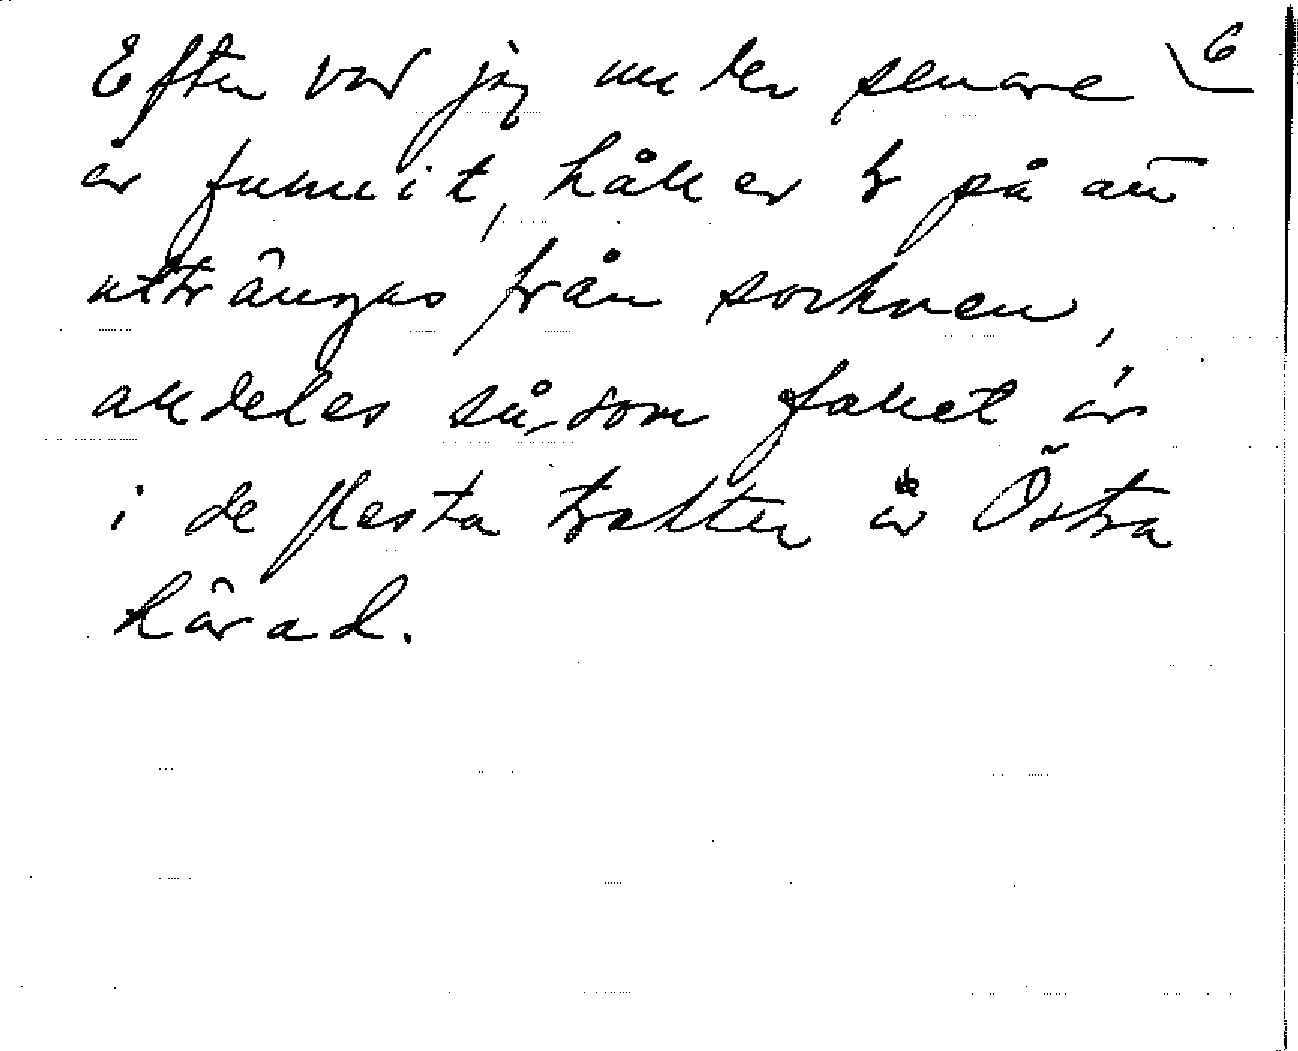 Efter vad jag under senare 6
år funnit, håller r på att
utträngas från socknen,
alldeles så som fallet är
i de flesta trakter av Östra
härad.